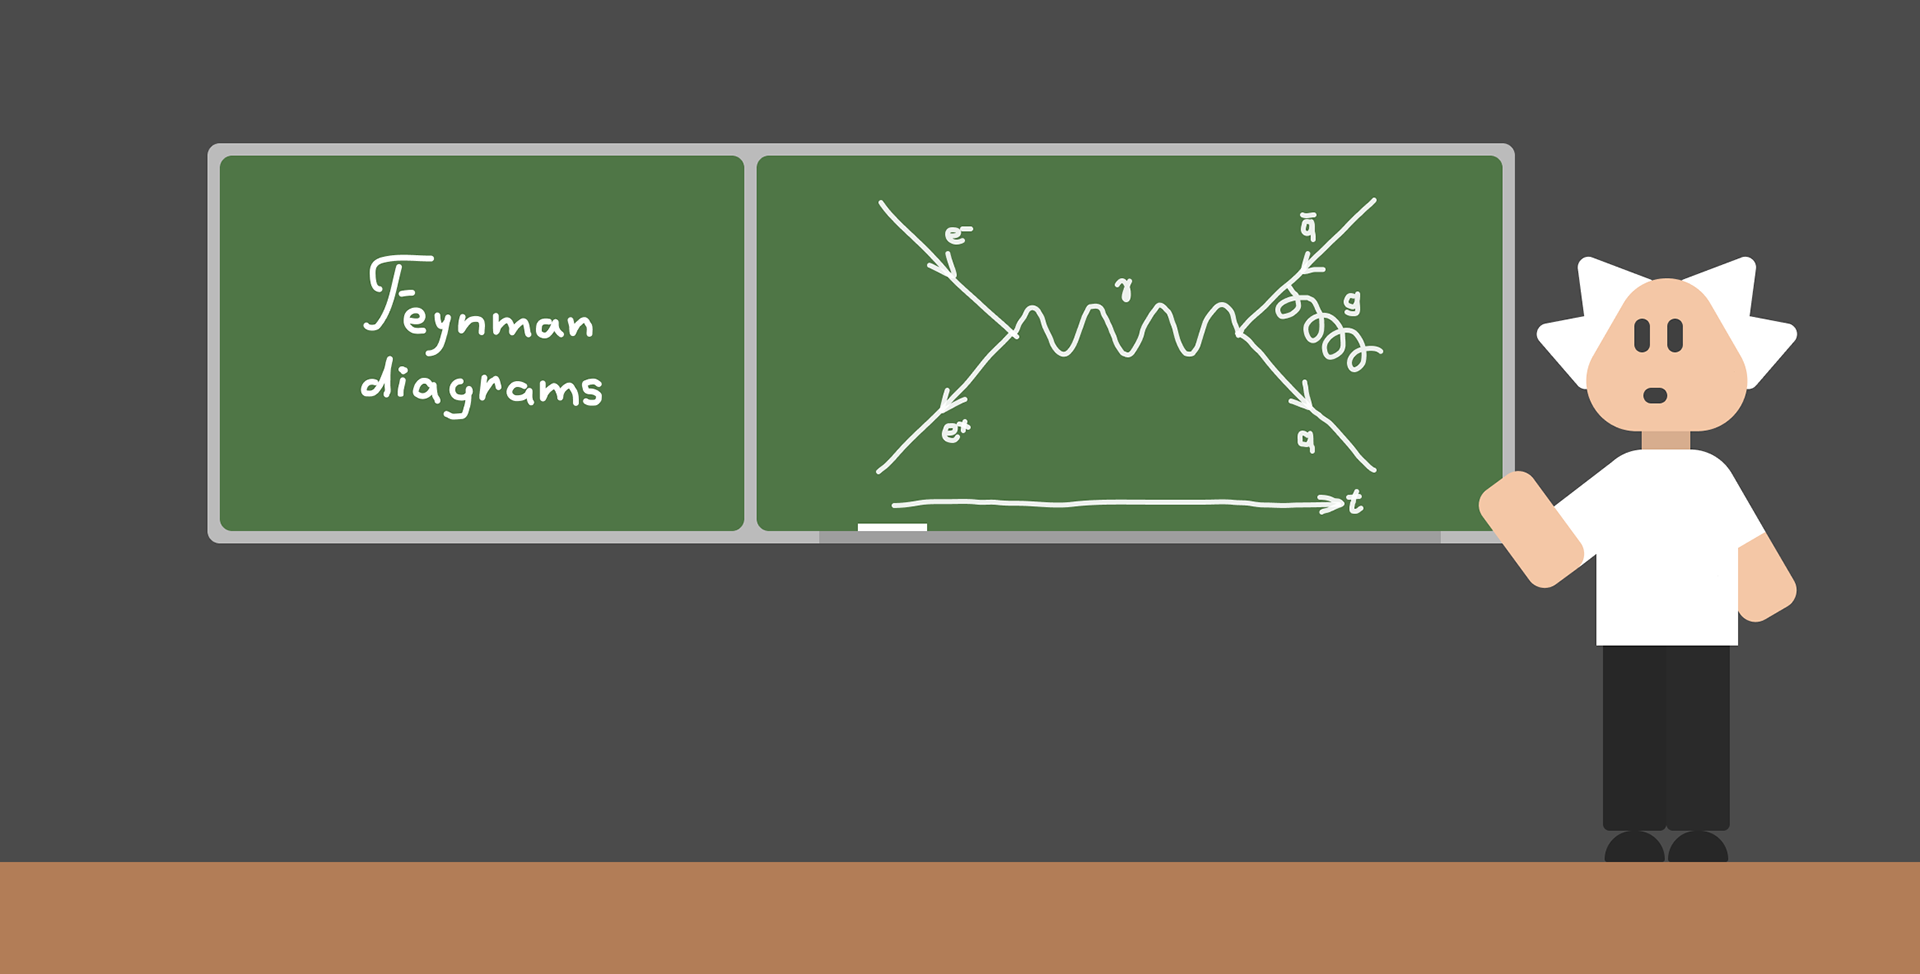 Feynman
diagrams
e⁻
q̄
γ
g
e⁺
q
t